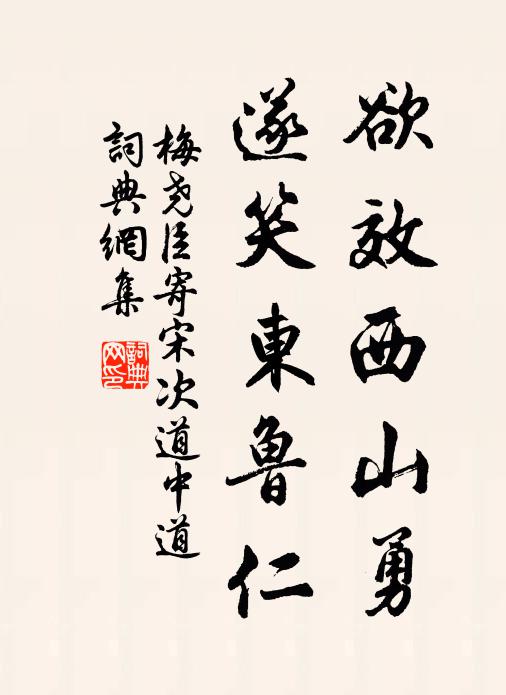 欲效西山勇
遂笑東魯仁
梅尧臣寄宋次道中道
詞典網集
詞典
网印